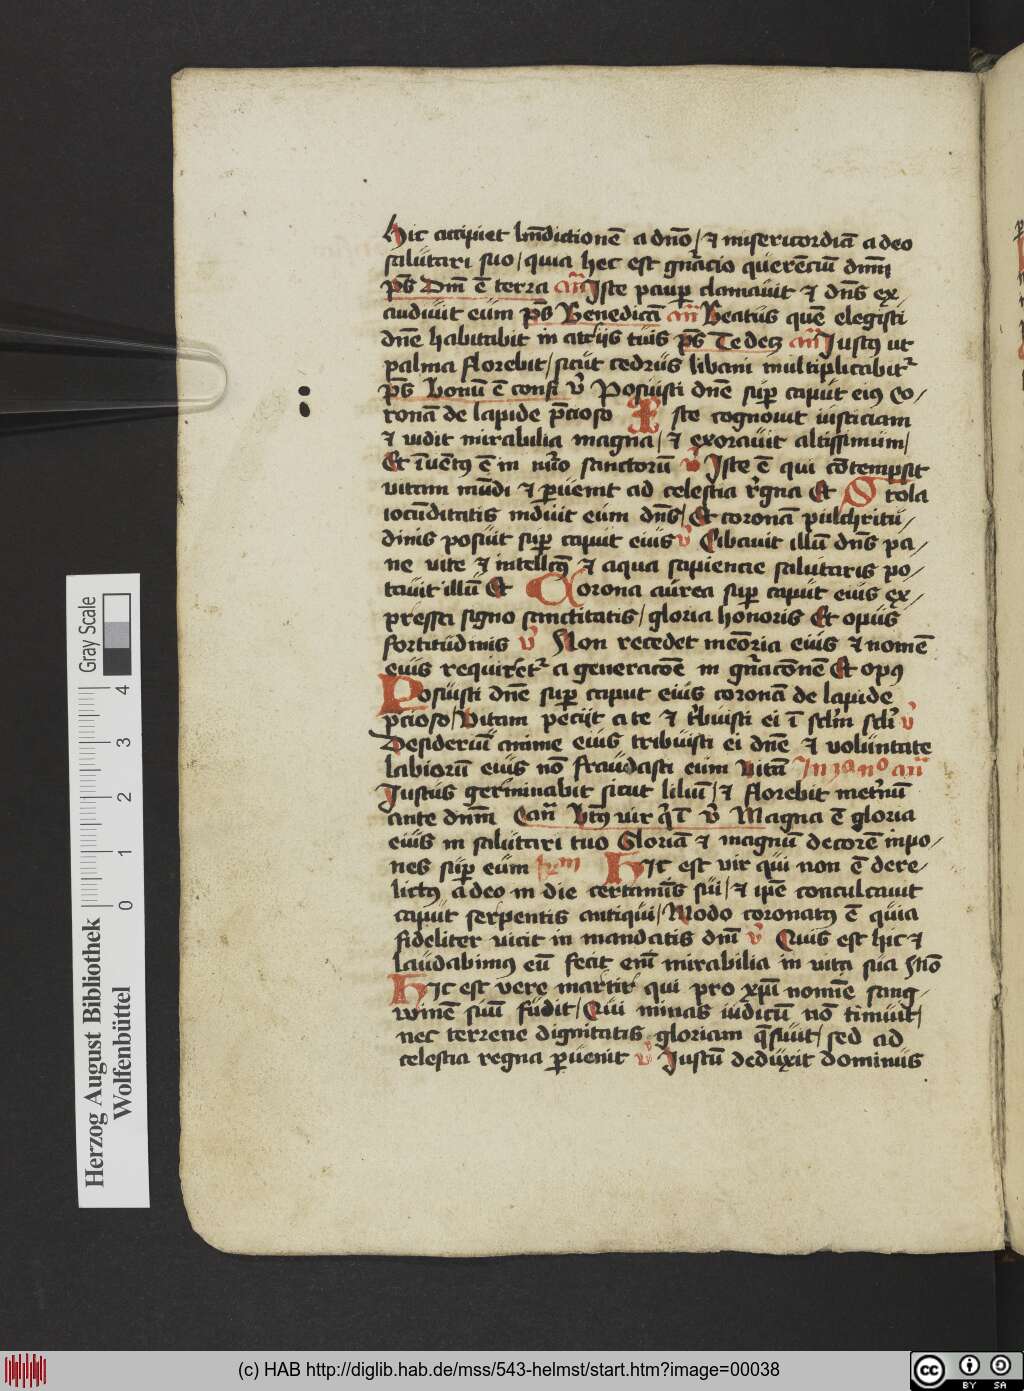 Hic accipiet bn̄dictionē a dn̄o / ⁊ misericordiā a deo
salutari suo / quia hec est gn̄acio querēciū dn̄m
p̄s Dn̄i ē terra an̄ Iste paup̄ clamauit ⁊ dn̄s ex-
audiuit eum p̄s Benedicā an̄ Beatus quē elegisti
dn̄e habitabit in atriis tuis p̄s Te decꝫ an̄ Iustꝰ ut
palma florebit / sicut cedrus libani multiplicabitr̄
p̄s Bonū ē confi v̄ Posuisti dn̄e sup̄ caput eiꝰ co-
ronā de lapide p̄cioso Iste cognouit iusticiam
⁊ vidit mirabilia magna / ⁊ exorauit altissimum /
Et īuētꝰ ē in nūo sanctorū v̄ Iste ē qui cōtempsit
vitam mūdi ⁊ p̄uenit ad celestia r̄gna Et Stola
iocūditatis induit eum dn̄s / Et coronā pulchritu-
dinis posuit sup̄ caput eius v̄ Cibauit illū dn̄s pa-
ne vite ⁊ intellcꝰ ⁊ aqua sapiencie salutaris po-
tauit illū Et Corona aurea sup̄ caput eius ex-
pressa signo sanctitatis / gloria honoris Et opus
fortitudinis v̄ Non recedet meōria eius ⁊ nomē
eius requiretr̄ a generacōe in gn̄acōnē Et opꝰ
Posuisti dn̄e sup̄ caput eius coronā de lapide
p̄cioso / Vitam peciit a te ⁊ t̄buisti ei ī sclm̄ scli v̄
Desideriū anime eius tribuisti ei dn̄e ⁊ voluntate
labiorū eius nō fraudasti eum Vitā In 3ͦ noͦ an̄
Iustus germinabit sicut liliū / ⁊ florebit met̄nū
ante dn̄m Ean̄ Btꝰ vir q̄ ī v̄ Magna ē gloria
eius in salutari tuo Gloriā ⁊ magnū decorē inpo-
nes sup̄ eum Hic est vir qui non ē dere-
lictꝰ a deo in die certaminis sui / ⁊ ip̄e conculcauit
caput serpentis antiqui / Modo coronatꝰ ē quia
fideliter vicit in mandatis dn̄i v̄ Quis est hic ⁊
laudabimꝰ eū fecit em̄ mirabilia in vita sua Mō
Hic est vere martir qui pro xp̄i nomīe sang-
winē suū fudit / Qui minas iudicū nō timuit /
nec terrene dignitatis gloriam q̄siuit / sed ad
celestia regna p̄uenit v̄ Iustū deduxit dominus
Gray Scale
0 1 2 3 4
Herzog August Bibliothek
Wolfenbüttel
(c) HAB http://diglib.hab.de/mss/543-helmst/start.htm?image=00038
cc BY SA